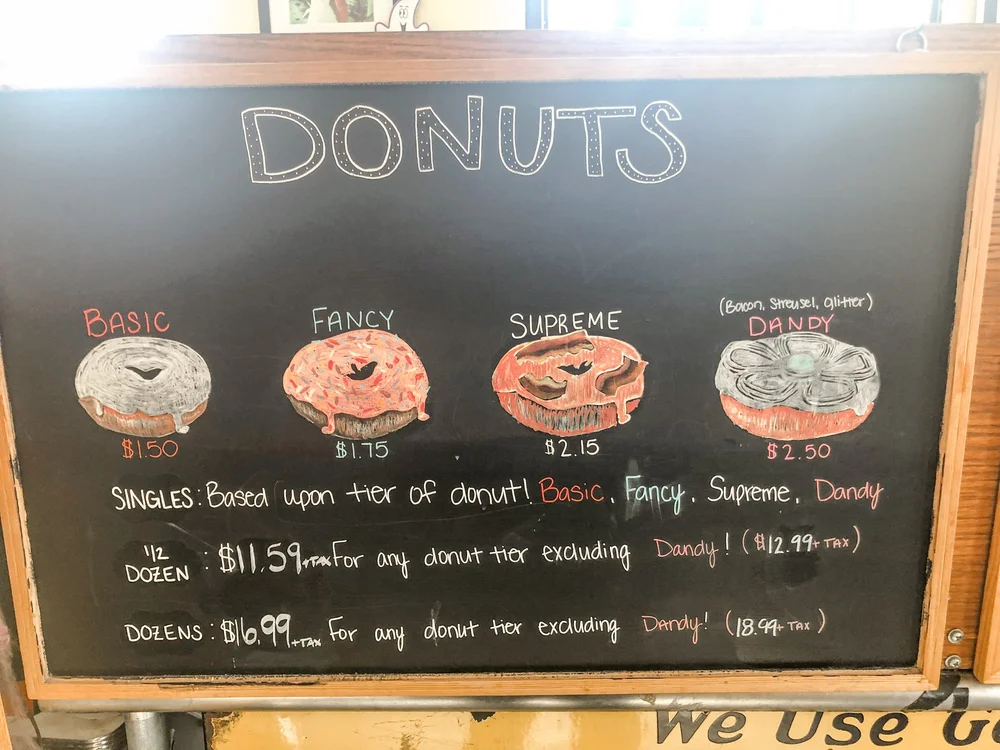 DONUTS
BASIC
FANCY
SUPREME
(Bacon, Streusel, Glitter)
DANDY
$1.50
$1.75
$2.15
$2.50
SINGLES: Based upon tier of donut! Basic, Fancy, Supreme, Dandy
1/2 DOZEN : $11.59 +TAX For any donut tier excluding Dandy! ($12.99 + TAX)
DOZENS : $16.99 +TAX For any donut tier excluding Dandy! (18.99 + TAX)
We Use